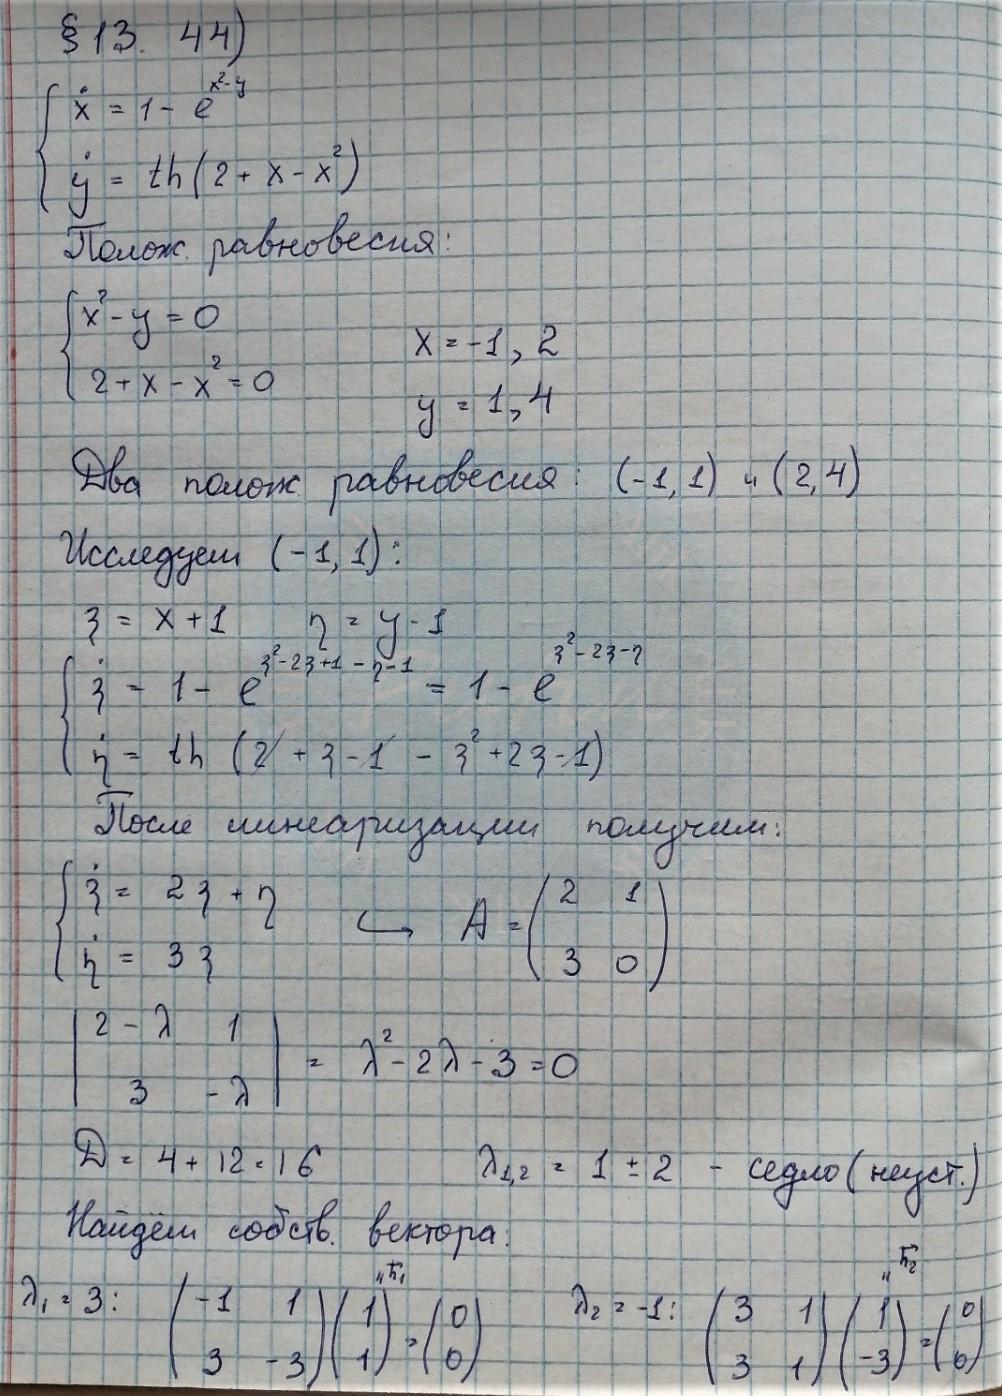 § 13. 44)
ẋ = 1 - e^{x²-y}
ẏ = th(2 + x - x²)
Полож. равновесия:
x² - y = 0
2 + x - x² = 0
x = -1, 2
y = 1, 4
Два полож. равновесия: (-1, 1) и (2, 4)
Исследуем (-1, 1):
ξ = x + 1 η = y - 1
ξ̇ = 1 - e^{ξ²-2ξ+1-η-1} = 1 - e^{ξ²-2ξ-η}
η̇ = th (2 + ξ - 1 - ξ² + 2ξ - 1)
После линеаризации получим:
ξ̇ = 2ξ + η
η̇ = 3ξ
↪ A = (2 1
3 0)
|2 - λ 1
3 -λ| = λ² - 2λ - 3 = 0
D = 4 + 12 = 16 λ₁,₂ = 1 ± 2 - седло (неуст.)
Найдём собств. вектора:
λ₁ = 3: (-1 1
3 -3) (1
1) = (0
0)
"h⃗₁
λ₂ = -1: (3 1
3 1) (1
-3) = (0
0)
"h⃗₂